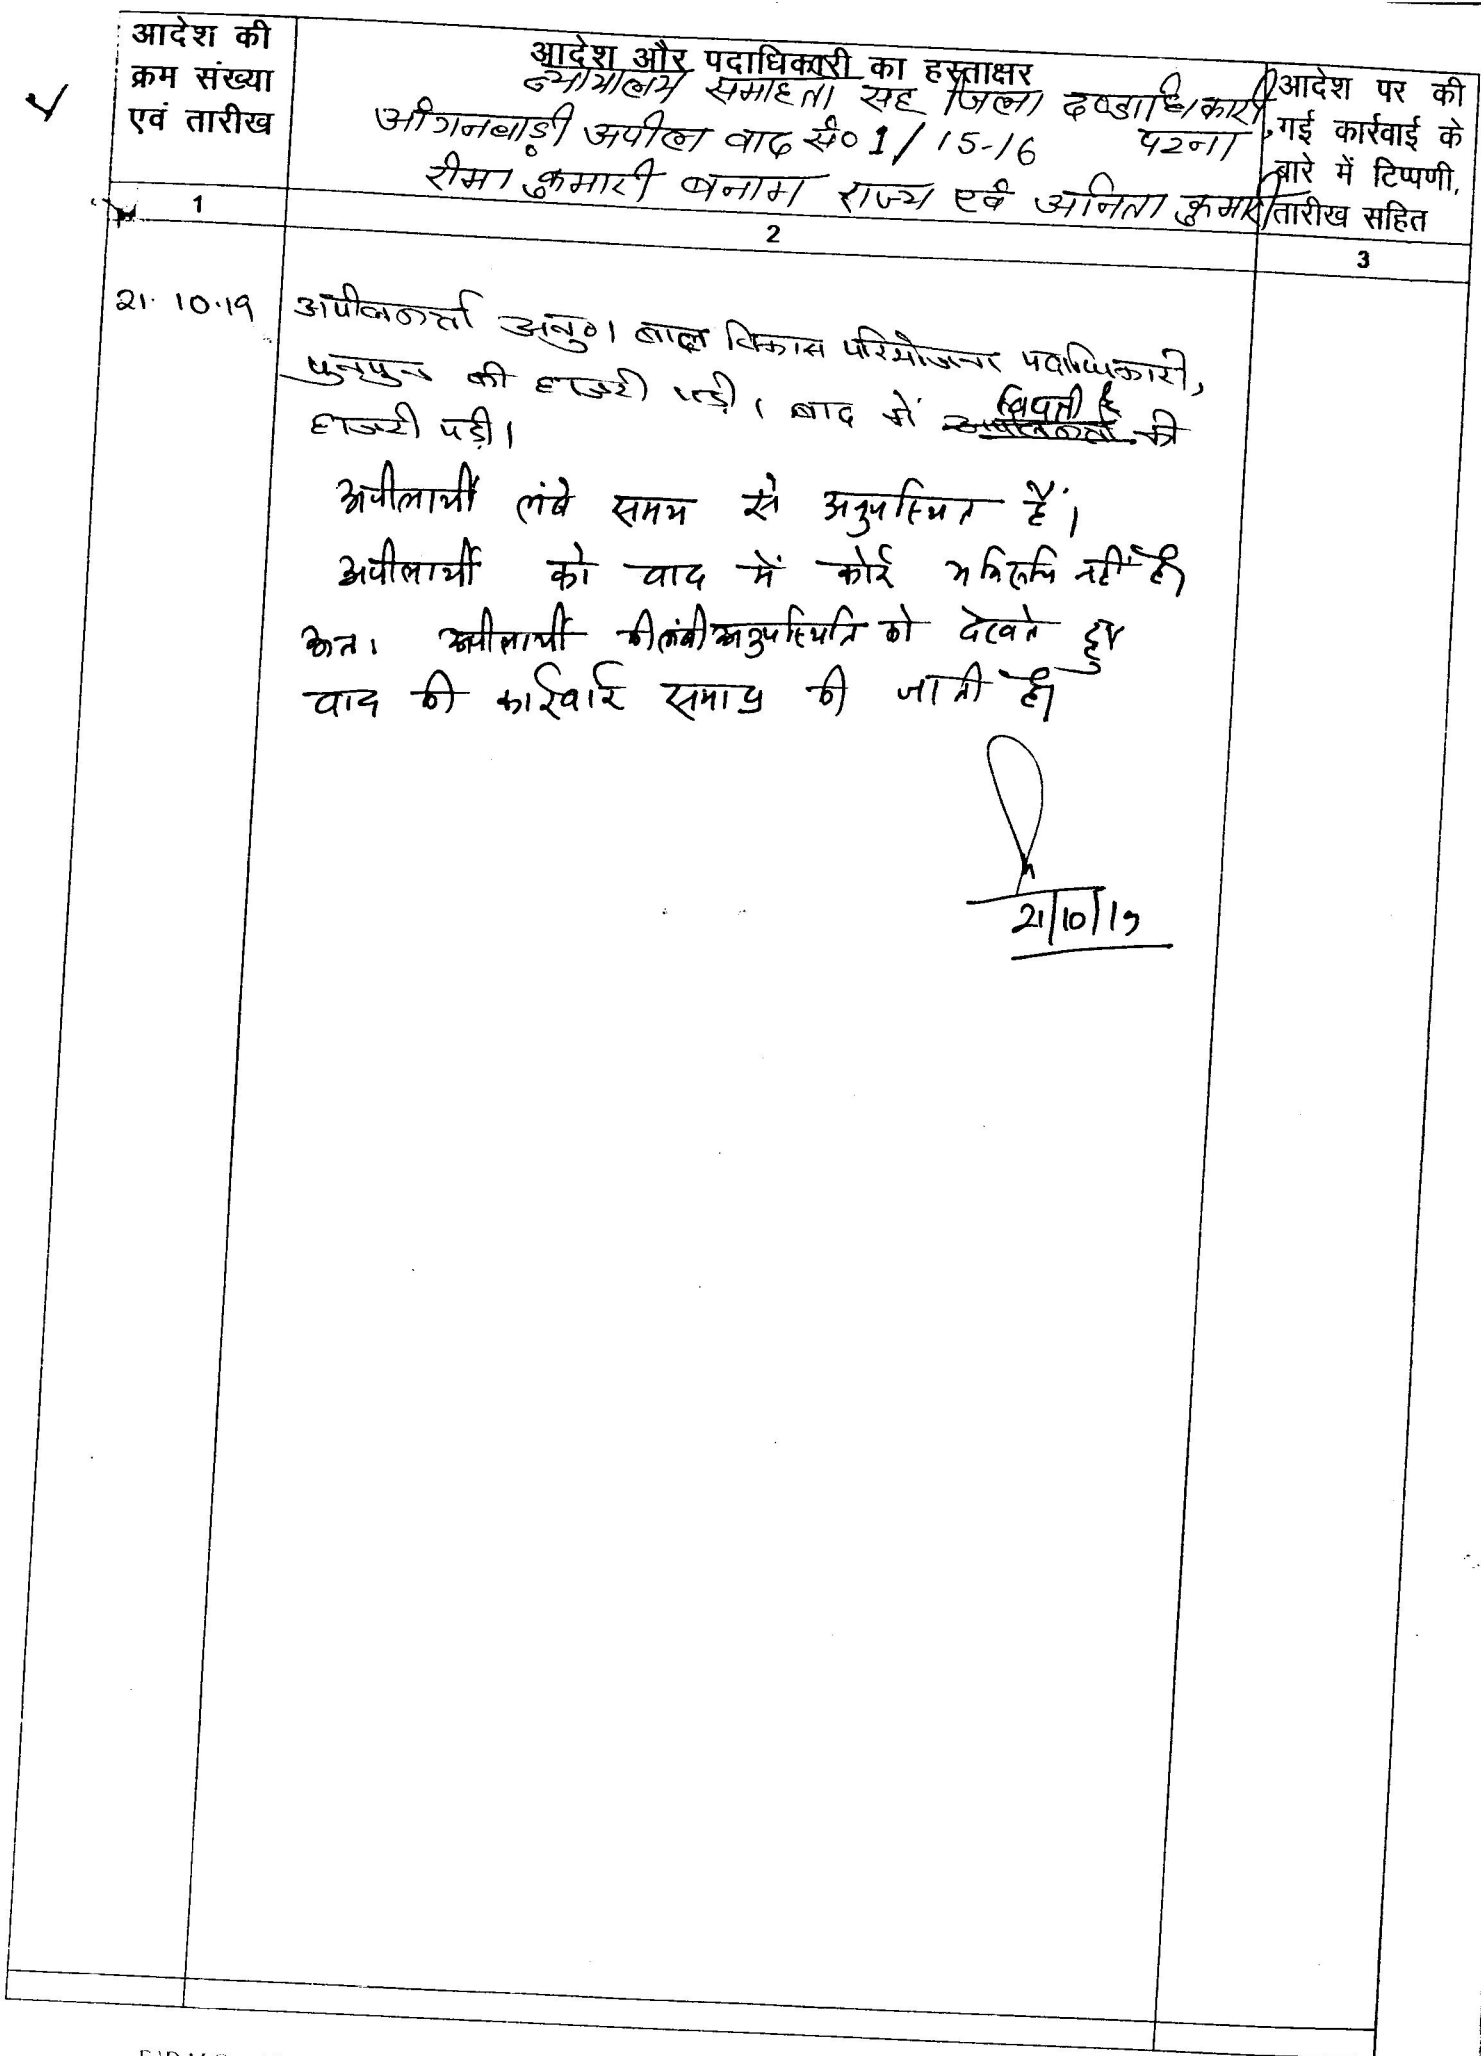 आदेश की
क्रम संख्या
एवं तारीख
आदेश और पदाधिकारी का हस्ताक्षर
न्यायालय समाहर्ता सह जिला दण्डाधिकारी,
पटना
आँगनबाड़ी अपील वाद सं० 1/15-16
रीमा कुमारी बनाम राज्य एवं अनिता कुमारी
आदेश पर की
गई कार्रवाई के
बारे में टिप्पणी,
तारीख सहित
1
2
3
21.10.19
अपीलकर्त्ता अनु०। बाल विकास परियोजना पदाधिकारी,
पुनपुन की हाजरी पड़ी। बाद में विपक्षी की
हाजरी पड़ी।
अपीलार्थी लंबे समय से अनुपस्थित हैं।
अपीलार्थी को वाद में कोई अभिरूचि नहीं है।
अतः अपीलार्थी की लंबी अनुपस्थिति को देखते हुए
वाद की कार्रवाई समाप्त की जाती है।
21/10/19